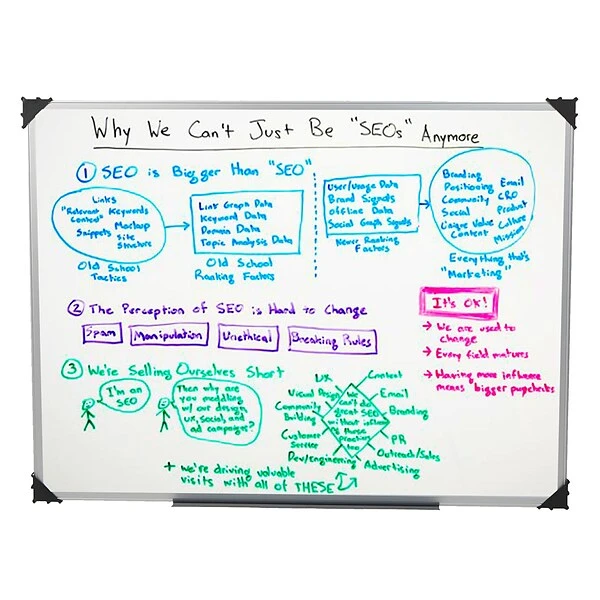 Why We Can't Just Be "SEOs" Anymore
① SEO is Bigger than "SEO"
Links
"Relevant Keywords
Content" Markup
Snippets Site
Structure
Old School
Tactics
Link Graph Data
Keyword Data
Domain Data
Topic Analysis Data
Old School
Ranking Factors
User/Usage Data
Brand Signals
Offline Data
Social Graph Signals
Newer Ranking
Factors
Branding
Positioning Email
Community CRO
Social Product
Unique Value Culture
Content Mission
Everything that's
"Marketing"
② The Perception of SEO is Hard to Change
Spam
Manipulation
Unethical
Breaking Rules
It's OK!
→ We are used to
change
→ Every field matures
→ Having more influence
means bigger paychecks
③ We're Selling Ourselves Short
I'm an
SEO
Then why are
you meddling
w/ our design,
ux, social, and
ad campaigns?
UX
Content
Visual Design
Email
Community
Building
Branding
Customer
Service
PR
Dev/engineering
Outreach/Sales
Advertising
We
can't do
great SEO
without influence
of these
practices
too
+ we're driving valuable
visits with all of THESE